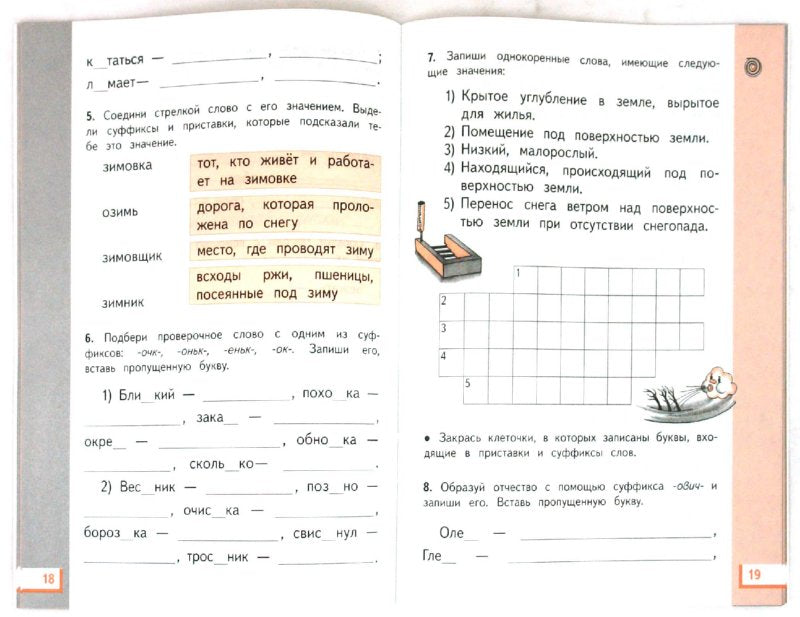 к__таться — ____________, ____________;
л__мает— ____________, ____________.
5. Соедини стрелкой слово с его значением. Выде-
ли суффиксы и приставки, которые подсказали те-
бе это значение.
зимовка
тот, кто живёт и работа-
ет на зимовке
озимь
дорога, которая проло-
жена по снегу
зимовщик
место, где проводят зиму
зимник
всходы ржи, пшеницы,
посеянные под зиму
6. Подбери проверочное слово с одним из суф-
фиксов: -очк-, -оньк-, -еньк-, -ок-. Запиши его,
вставь пропущенную букву.
1) Бли__кий — ____________, похо__ка —
____________, зака__ — ____________,
окре__ — ____________, обно__ка —
____________, сколь__ко— ____________.
2) Вес__ник — ____________, поз__но —
____________, очис__ка — ____________,
бороз__ка — ____________, свис__нул —
____________, трос__ник — ____________.
18
7. Запиши однокоренные слова, имеющие следую-
щие значения:
1) Крытое углубление в земле, вырытое
для жилья.
2) Помещение под поверхностью земли.
3) Низкий, малорослый.
4) Находящийся, происходящий под по-
верхностью земли.
5) Перенос снега ветром над поверхнос-
тью земли при отсутствии снегопада.
1
2
3
4
5
• Закрась клеточки, в которых записаны буквы, вхо-
дящие в приставки и суффиксы слов.
8. Образуй отчество с помощью суффикса -ович- и
запиши его. Вставь пропущенную букву.
Оле__ — ____________,
Гле__ — ____________,
19